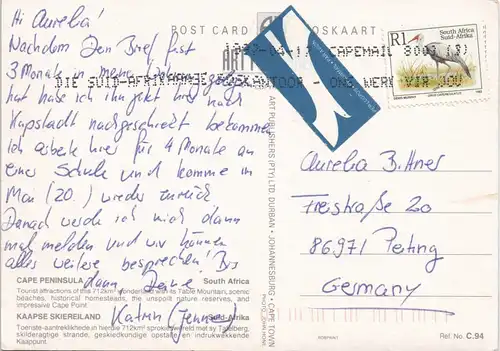 Hi Aurelia!
Nachdem Dein Brief fast
3 Monate in meine
hat habe ich ihn jetzt und nach
Kapstadt nachgeschickt bekommen
ich arbeite hier für 4 Monate an
einer Schule und komme im
Mai (20.) wieder zurück
Danach werde ich mich dann
mal melden und wir können
alles weitere besprechen! Bis
dann, Deine
Katrin (Jenne)
CAPE PENINSULA South Africa
Tourist attractions of this 712km² wonderland with its Table Mountain, scenic
beaches, historical homesteads, the unspoilt nature reserves, and
impressive Cape Point
KAAPSE SKIEREILAND Suid-Afrika
Toeriste-aantreklikhede in hierdie 712km² sprokieswêreld met sy Tafelberg,
skilderagtige strande, geskiedkundige opstalle en indrukwekkende
Kaappunt.
POST CARD POSKAART
ART PUBLISHERS (PTY) LTD. DURBAN • JOHANNESBURG • CAPE TOWN
CAPEMAIL 8000
DIE SUID-AFRIKAANSE POSKANTOOR - ONS WERK VIR JOU
R1 South Africa
Suid-Afrika
Aurelia Bittner
Freistraße 20
86971 Peiting
Germany
Ref. No. C.94